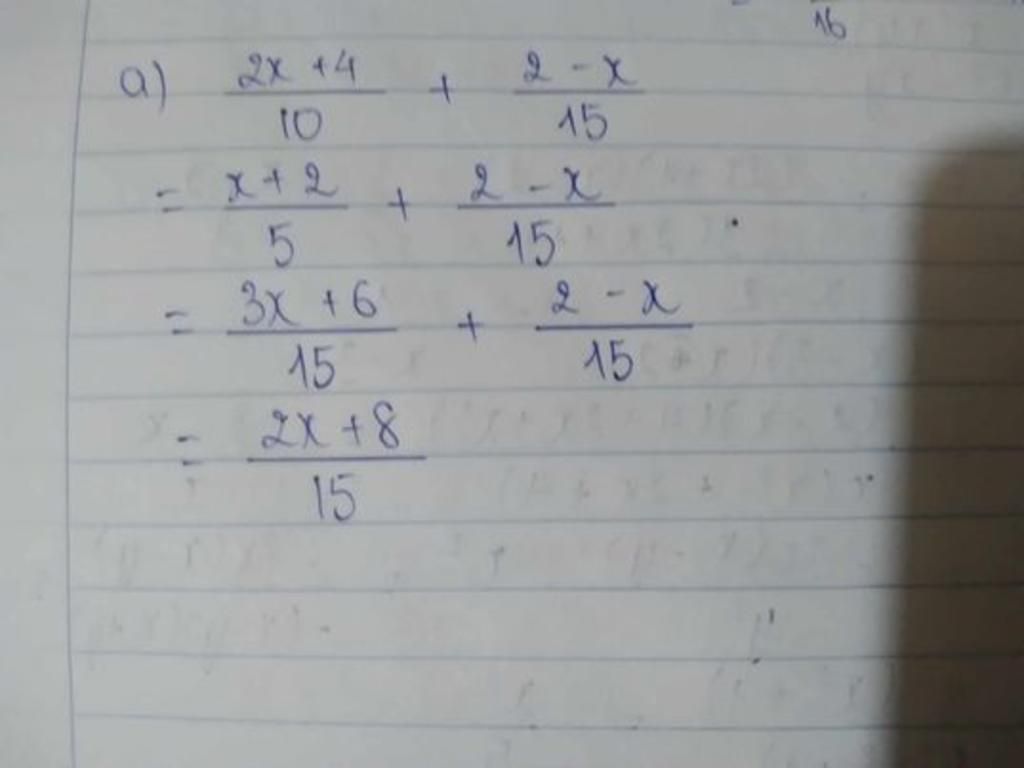 16
a) \frac{2x+4}{10} + \frac{2-x}{15}
= \frac{x+2}{5} + \frac{2-x}{15}
= \frac{3x+6}{15} + \frac{2-x}{15}
= \frac{2x+8}{15}